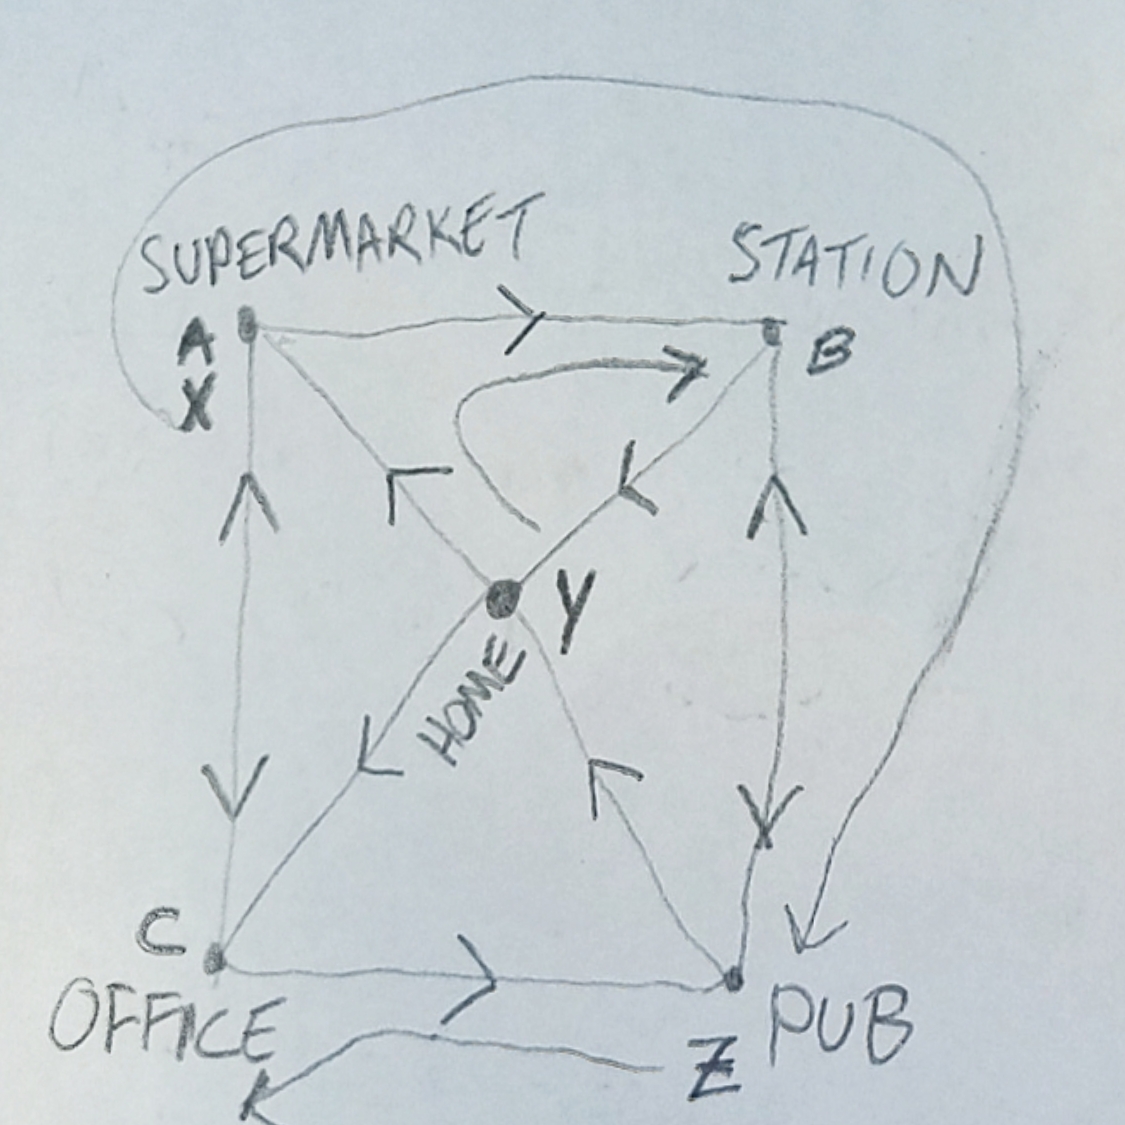 SUPERMARKET
STATION
A
B
X
Y
HOME
C
OFFICE
PUB
Z